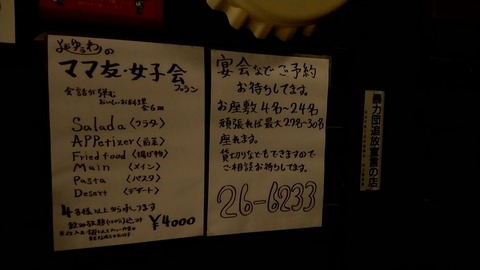 ママ友・女子会
プラン
会話が弾む
おいしいお料理 全6皿
Salada〈サラダ〉
APPetizer〈前菜〉
Fried food〈揚げ物〉
Main〈メイン〉
Pasta〈パスタ〉
Desert〈デザート〉
4名様以上から承ります
¥4000
宴会などご予約
お待ちしてます。
お座敷4名〜24名
頑張れば最大27名〜30名
座れます。
貸切りなどもできますので
ご相談お待ちしてます。
26-6233
暴力団追放宣言の店